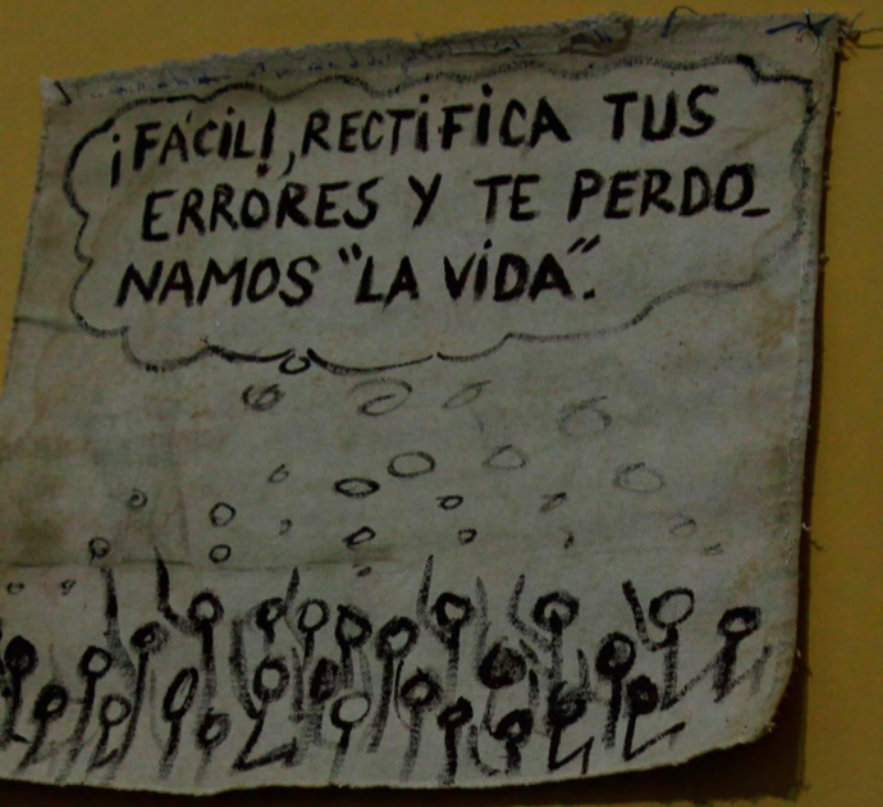 ¡FÁCIL!, RECTIFICA TUS
ERRORES Y TE PERDO_
NAMOS "LA VIDA".